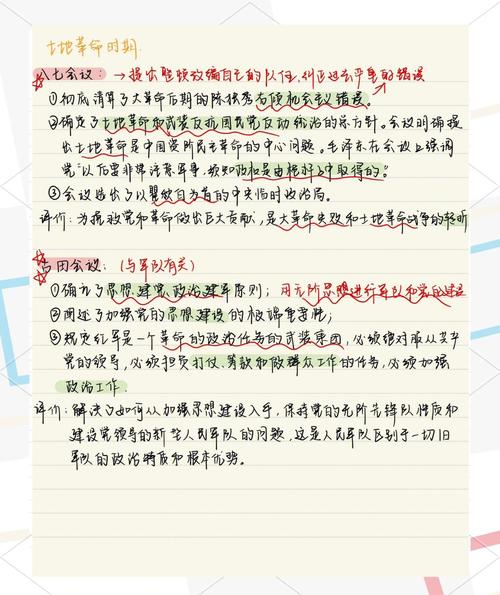 土地革命时期.
八七会议: → 提出整顿改编自己的队伍, 纠正过去严重的错误
①彻底清算了大革命后期的陈独秀右倾机会主义错误。
②确定了土地革命和武装反抗国民党反动统治的总方针。会议明确提
出土地革命是中国资产阶级民主革命的中心问题。毛泽东在会议上强调
党“以后要非常注意军事, 须知政权是由枪杆子中取得的。”
③会议选出了以瞿秋白为首的中央临时政治局。
评价: 为挽救党和革命做出巨大贡献, 是大革命失败和土地革命战争的转折
古田会议: (与军队有关)
①确立了思想建党、政治建军原则; 用无产阶级思想进行军队和党的建设
②阐述了加强党的思想建设的极端重要性;
③规定红军是一个革命的政治任务的武装集团, 必须绝对服从共产
党的领导, 必须担负打仗、筹款和做群众工作的任务, 必须加强
政治工作
评价: 解决了如何从加强思想建设入手, 保持党的无产阶级先锋队性质和
建设党领导的新型人民军队的问题, 这是人民军队区别于一切旧
军队的政治特质和根本优势。